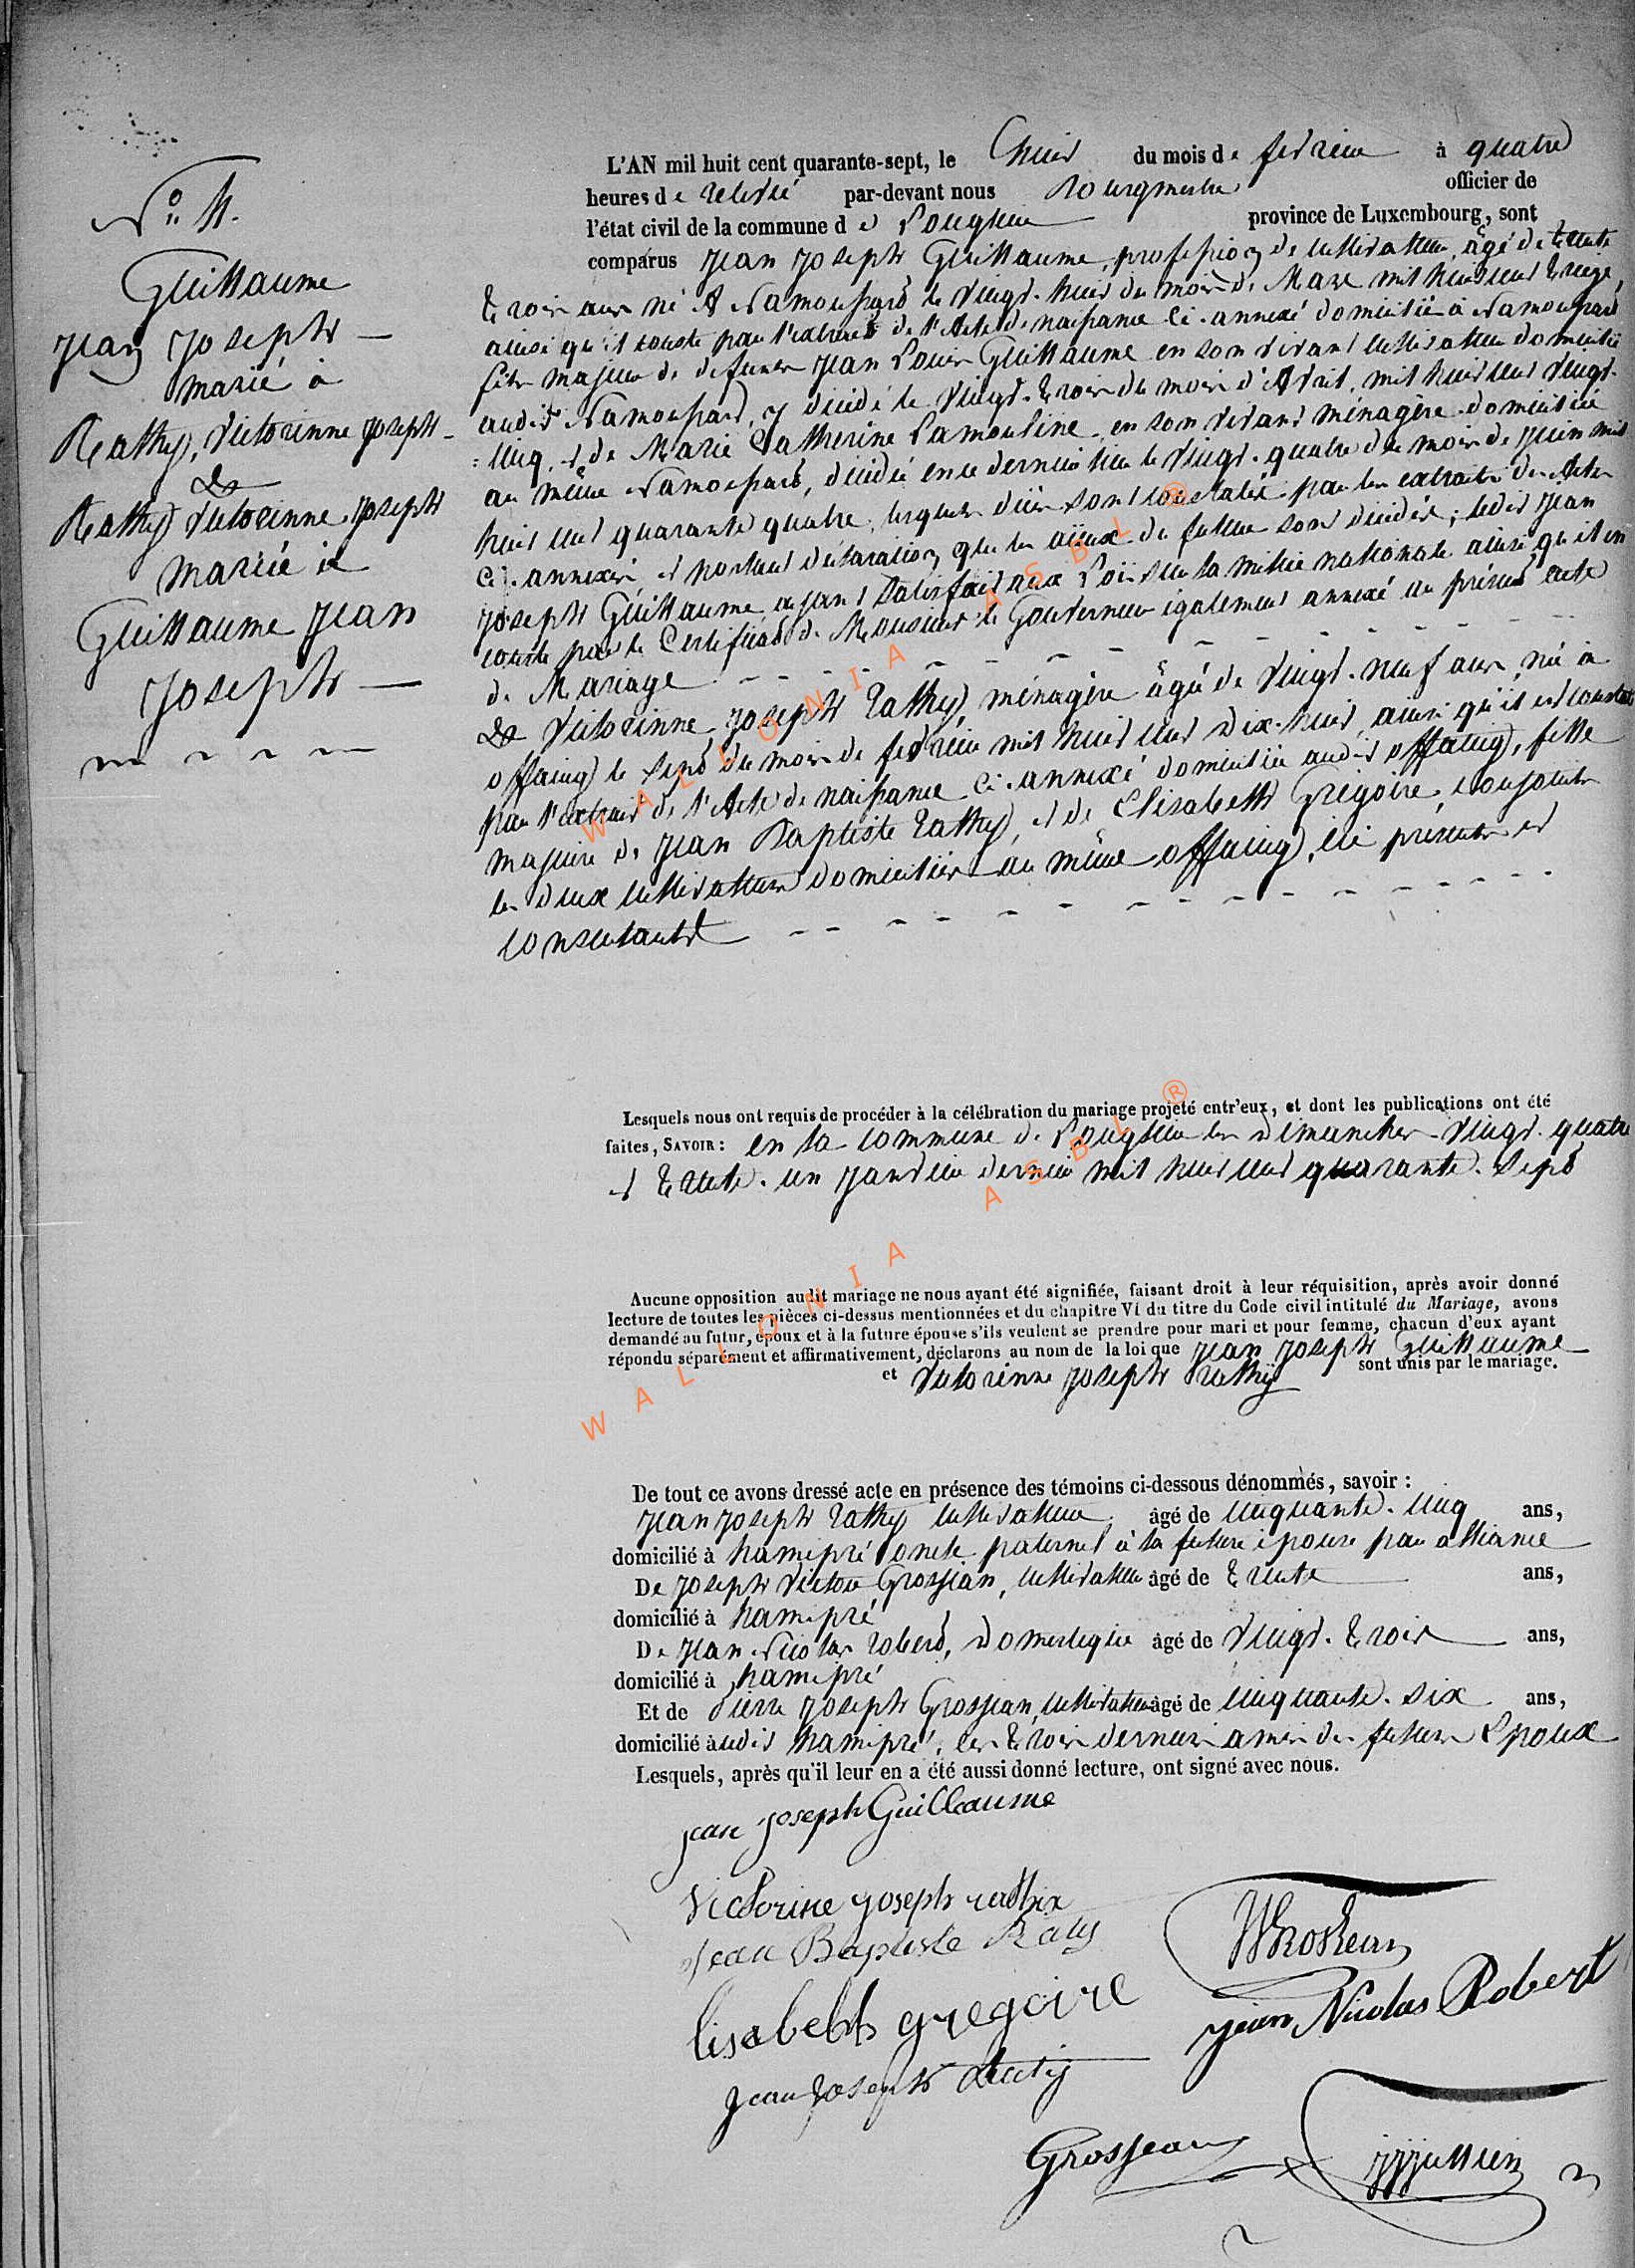 N.° 4.
Guillaume
Jean Joseph —
marié à
Rathy, Victorinne Joseph
&
Rathy Victorinne Joseph
mariée à
Guillaume Jean
Joseph —
L'AN mil huit cent quarante-sept, le huit du mois de fevrier à quatre
heures de relevé par-devant nous Bourgmestre officier de
l'état civil de la commune de Longlier province de Luxembourg, sont
comparus Jean Joseph Guillaume, profession de cultivateur, âgé de trente
trois ans né à Namoussart le vingt-huit du mois de Mars mil huit cent treize,
ainsi qu'il conste par l'extrait de l'Acte de naissance ci-annexé domicilié à Namoussart
fils majeur de defunts Jean Louis Guillaume en son vivant cultivateur domicilié
audit Namoussart, y décédé le vingt-trois du mois d'Avril, mil huit cent vingt-
=cinq, et de Marie Catherine Lamouline en son vivant ménagère domiciliée
au même Namoussart, décédée en ce dernier lieu le vingt-quatre du mois de Juin mil
huit cent quarante quatre, lesquels décès sont constatés par les extraits des Actes
ci-annexés et portant déclaration que les aïeux du futur sont décédés; ledit Jean
Joseph Guillaume ayant satisfait aux Lois sur la milice nationale ainsi qu'il en
conste par le Certificat de Monsieur le Gouverneur également annexé au présent acte
de Mariage
& Victorinne Joseph Rathy, ménagère âgée de vingt-neuf ans, née à
Offaing le sept du mois de fevrier mil huit cent dix-huit, ainsi qu'il est constaté
par l'extrait de l'Acte de naissance ci-annexé domiciliée audit Offaing, fille
majeure de Jean Baptiste Rathy, et de Elisabeth Grégoire, conjoints
les deux cultivateurs domiciliés au même Offaing, ici présents et
consentants
Lesquels nous ont requis de procéder à la célébration du mariage projeté entr'eux, et dont les publications ont été
faites, SAVOIR: en la commune de Longlier les dimanches vingt-quatre
et trente-un janvier dernier mil huit cent quarante-sept
Aucune opposition audit mariage ne nous ayant été signifiée, faisant droit à leur réquisition, après avoir donné
lecture de toutes les pièces ci-dessus mentionnées et du chapitre VI du titre du Code civil intitulé du Mariage, avons
demandé au futur, époux et à la future épouse s'ils veulent se prendre pour mari et pour femme, chacun d'eux ayant
répondu séparément et affirmativement, déclarons au nom de la loi que Jean Joseph Guillaume
et Victorinne Joseph Rathy sont unis par le mariage.
De tout ce avons dressé acte en présence des témoins ci-dessous dénommés, savoir:
Jean Joseph Rathy cultivateur âgé de cinquante-cinq ans,
domicilié à hamipré oncle paternel à la future épouse par alliance
De Joseph Victor Grosjean, cultivateur âgé de trente ans,
domicilié à hamipré
De Jean Nicolas Robert, Domestique âgé de vingt-trois ans,
domicilié à hamipré
Et de Pierre Joseph Grosjean, cultivateur âgé de cinquante-six ans,
domicilié audit hamipré, les trois derniers amis des futurs Epoux
Lesquels, après qu'il leur en a été aussi donné lecture, ont signé avec nous.
jean joseph Guillaume
Victorine joseph rathy
Jean Baptiste Raty
lisabeth gregoire
Jean Joseph Raty
Jean Nicolas Robert
Grosjean
WALLONIA ASBL ®
WALLONIA ASBL ®